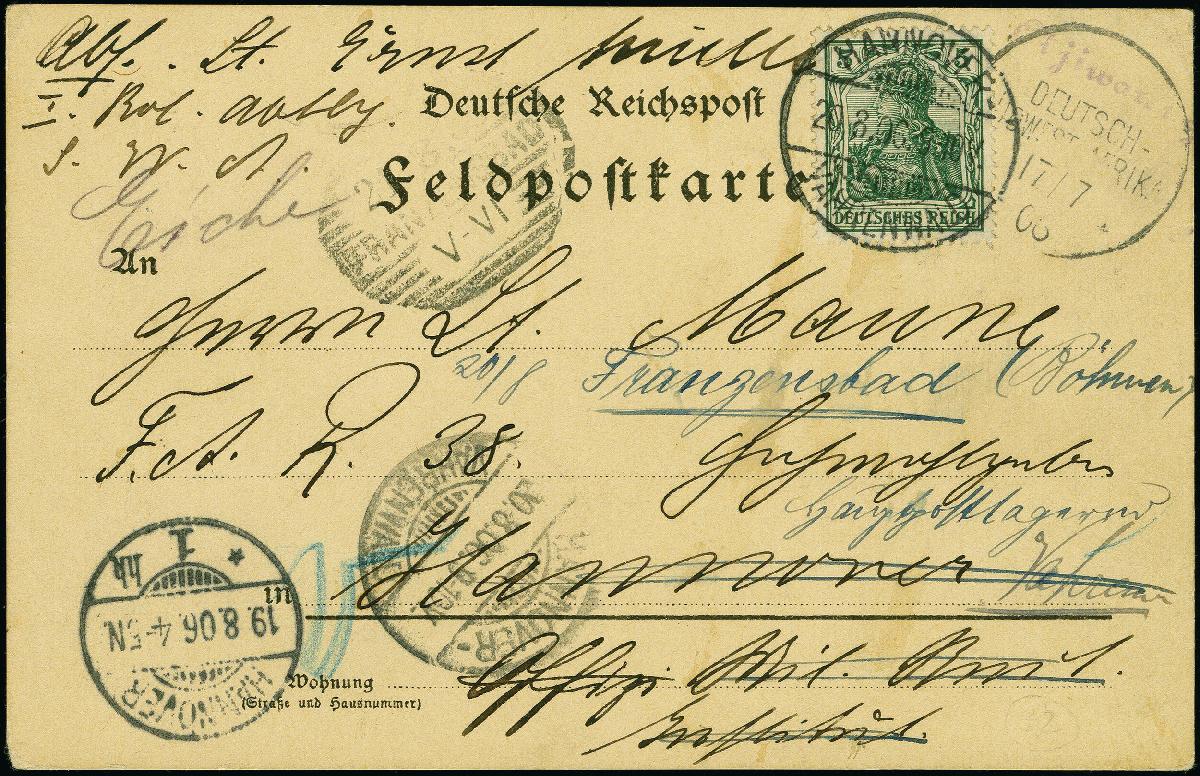 Abs. Lt. Ernst Müller
I. Kol. Abtlg.
S. W. A.
Deutsche Reichspost
Feldpostkarte
5 5
DEUTSCHES REICH
HANNOVER
DEUTSCH-
SÜDWESTAFRIKA
17/7
06
V-VI
An
Herrn Lt. Maune
20/8 Franzensbad (Böhmen)
F. A. R. 38.
Hauptpostlagernd
Hannover
in
HANNOVER
20.8.06
HANNOVER
1
hk
19.8.06.4-5N.
Wohnung
(Straße und Hausnummer)
Offizier Mil. Reit.
Institut.